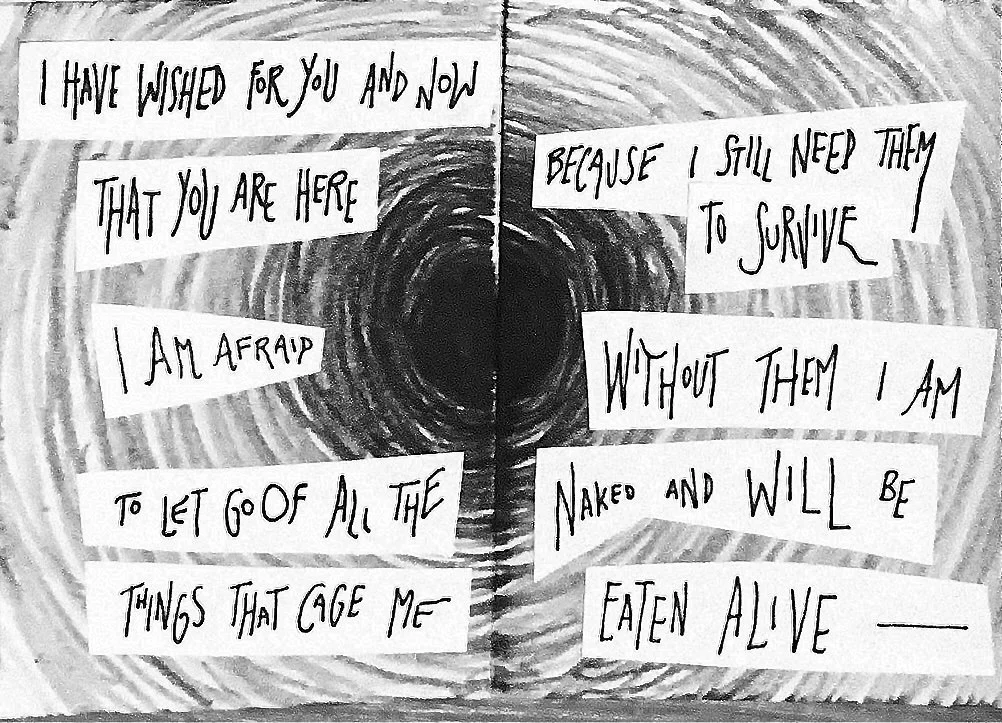 I HAVE WISHED FOR YOU AND NOW
THAT YOU ARE HERE
I AM AFRAID
TO LET GO OF ALL THE
THINGS THAT CAGE ME—
BECAUSE I STILL NEED THEM
TO SURVIVE
WITHOUT THEM I AM
NAKED AND WILL BE
EATEN ALIVE —